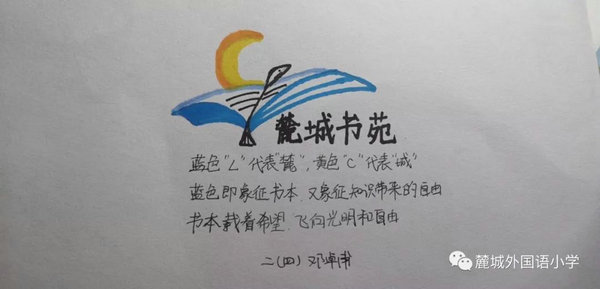 麓城书苑
蓝色"L"代表"麓",黄色"C"代表"城"
蓝色即象征书本,又象征知识带来的自由
书本载着希望,飞向光明和自由
二(四) 邓卓
麓城外国语小学